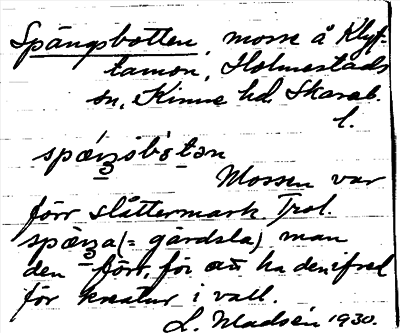 Spångsbotten, mosse å Klyf-
tamon, Holmestads
sn, Kinne hd, Skarab.
l.
spæŋsbòtən
Mossen var
förr slåttermark Trol.
spæŋa (= gärdsla) man
den förr, för att ha den ifred
för kreatur i vall.
L. Madsén 1930.